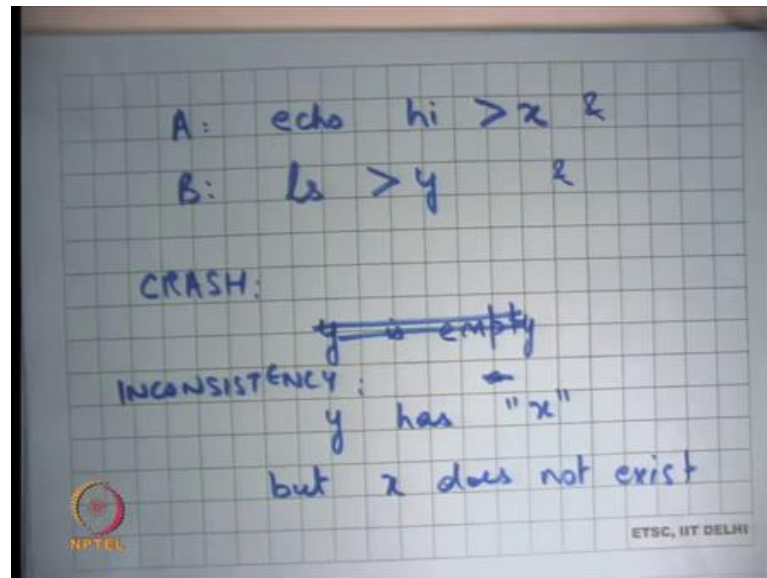 A: echo hi > x &
B: ls > y &
CRASH:
y is empty
INCONSISTENCY:
y has "x"
but x does not exist
NPTEL
ETSC, IIT DELHI